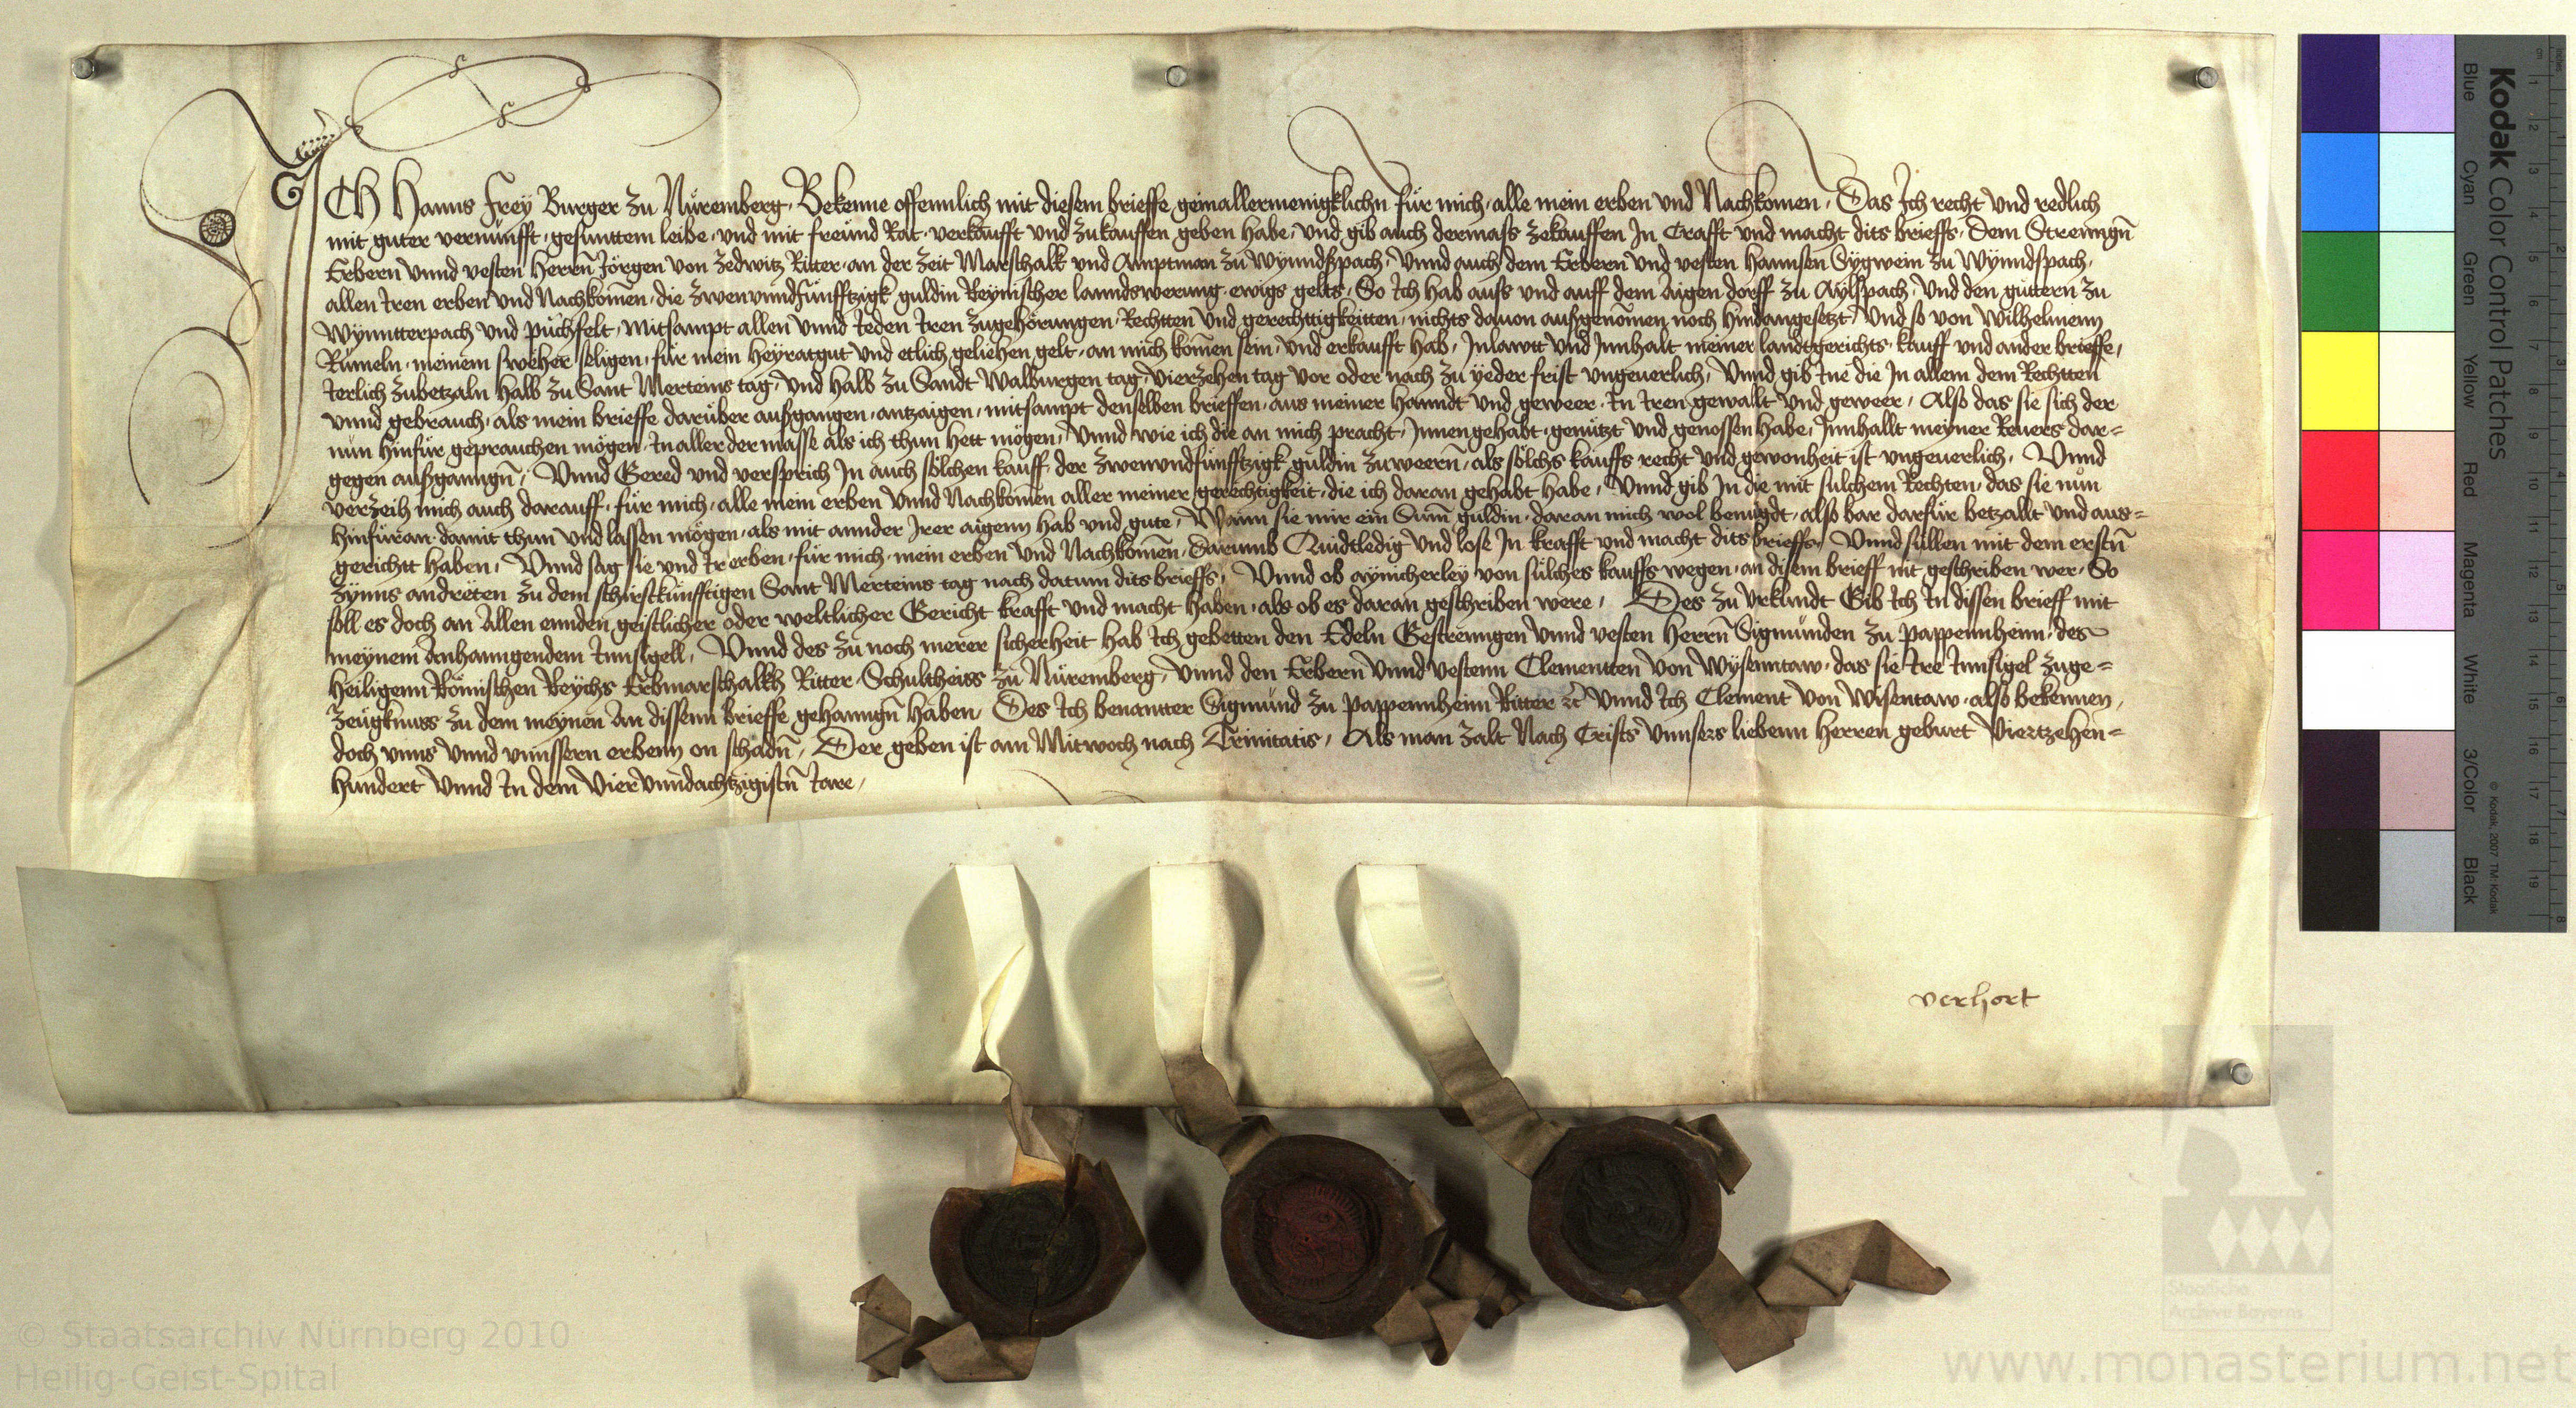 ICH Hanns Frey Burger zu Nüremberg, Bekenne offennlich mit diesem brieffe geinallermenigklichn für mich, alle mein erben vnd Nachkomen, Das Ich recht vnd redlich
mit guter vernunfft, gesunttem leibe, vnd mit freund Rat, verkaufft vnd zukauffen geben habe, vnd gib auch dermass zekauffen In Crafft vnd macht dits brieffs, Dem Strenngn̄
Erbern vnnd vesten Herrn̄ Jörgen von Zedwitz Ritter, an der Zeit Marschalk vnd Amptman zu Wynndßpach, Vnnd auch dem Erbern vnd vesten Hannsen Sygwein zu Wynndspach,
allen Iren erben vnd Nachkomēn, die Zwenvnndfünfftzigk guldin Reynischer lanndswerung ewigs gelts, So Ich hab auss vnd auff dem aigen dorff zu Aylspach, Vnd den guttern zu
Wynntterpach vnd püchfelt, Mitsampt allen vnnd Ieden Iren zugehörungen, Rechtten vnd gerechttigkeitten, nichts dauon ausgenomēn noch hindangesetzt, Vnd so von Wilhelmenn
Rümeln, meinem sweher seligen, für mein Heyratgut vnd etlich geliehen gelt, an mich komēn sein, vnd erkaufft hab, Inlawtt vnd Innhalt meiner landtgerichts kauff vnd ander brieffe,
Ierlich zubetzaln halb zu Sant Merteins tag, vnd halb zu Sandt Walburgen tag, vierzehen tag vor oder nach zu yeder frist vngeuerlich, Vnnd gib Ine die In allem dem Rechtten
vnnd gebrauch, als mein brieffe darüber aufgangen, antzaigen, mitsampt denselben brieffen, aus meiner hanndt vnd geweer, In Iren gewalt vnd geweer, Also das sie sich der
nun hinfür geprauchen mögen, In aller der masse als ich thun hett mögen, Vnnd wie ich die an mich pracht, Innengehabt, genützt vnd genossen habe, Innhallt meyner Reuers dar=
gegen außganngn̄, Vnnd Gered vnd versprich In auch sölchen kauff der Zwenvndfünfftzigk guldin zuweern̄, als sölchs kauffs recht vnd gewonheit ist vngeuerlich, Vnnd
verzeih mich auch darauff, für mich, alle mein erben vnnd Nachkomēn aller meiner gerechtigkeit, die ich daran gehabt habe, Vnnd gib In die mit sülchem Rechten, das sie nün
hinfüran damit thun vnd lassen mögen, als mit annder Irer aigenn hab vnd gute, Wann sie mir ein Sum̄ guldin, daran mich wol benügdt, also bar darfür betzallt vnd aus=
gerichtt haben, Vnnd sag sie vnd Ir erben, für mich, mein erben vnd Nachkomēn, darumb Quidtledig vnd lose In krafft vnd macht dits brieffs, Vnnd süllen mit dem erstn̄
Zynns andreten zu dem schirstkünfftigen Sant Merteins tag nach datum dits brieffs, Vnnd ob aynicherley von sülches kauffs wegen, an disem brieff nit geschriben wer, So
soll es doch an Allen ennden geistlicher oder weltlicher Gericht krafft vnd macht haben, als ob es daran geschriben were, Des zu Vrkundt Gib Ich In dissen brieff mit
meynem Anhanngendem Innsigell, Vnnd des zu noch merer sicherheit hab Ich gebetten den Edeln Gestrenngen vnnd vesten Herrn̄ Sigmunden zu pappennheim, des
heiligenn Römischen Reychs Erbmarschalkh Ritter, Schultheiss zu Nüremberg, Vnnd den Erbern vnnd vestenn Clementten von Wysenntaw, das sie Ire Innsigel zuge=
zeugknuss zu dem meynen An dissem brieffe gehanngn̄ haben, Des Ich benantter Sigmund zu pappennheim Ritter ꝛc̄ Vnnd Ich Clement von Wisentaw, also bekennen,
doch vnns vnnd vnnssern erbenn on schadn̄, Der geben ist am Mitwoch nach Trinitatis, Als man zalt Nach Crists vnnsers liebenn herren geburt Viertzehen=
hundert Vnnd In dem Viervnndachtzigistn̄ Iare,
verhort
© Staatsarchiv Nürnberg 2010
Heilig-Geist-Spital
Staatliche
Archive Bayerns
www.monasterium.net
Kodak Color Control Patches
© Kodak, 2007 TM: Kodak
Blue Cyan Green Yellow Red Magenta White 3/Color Black
cm 1 2 3 4 5 6 7 8 9 10 11 12 13 14 15 16 17 18 19
inches 1 2 3 4 5 6 7 8